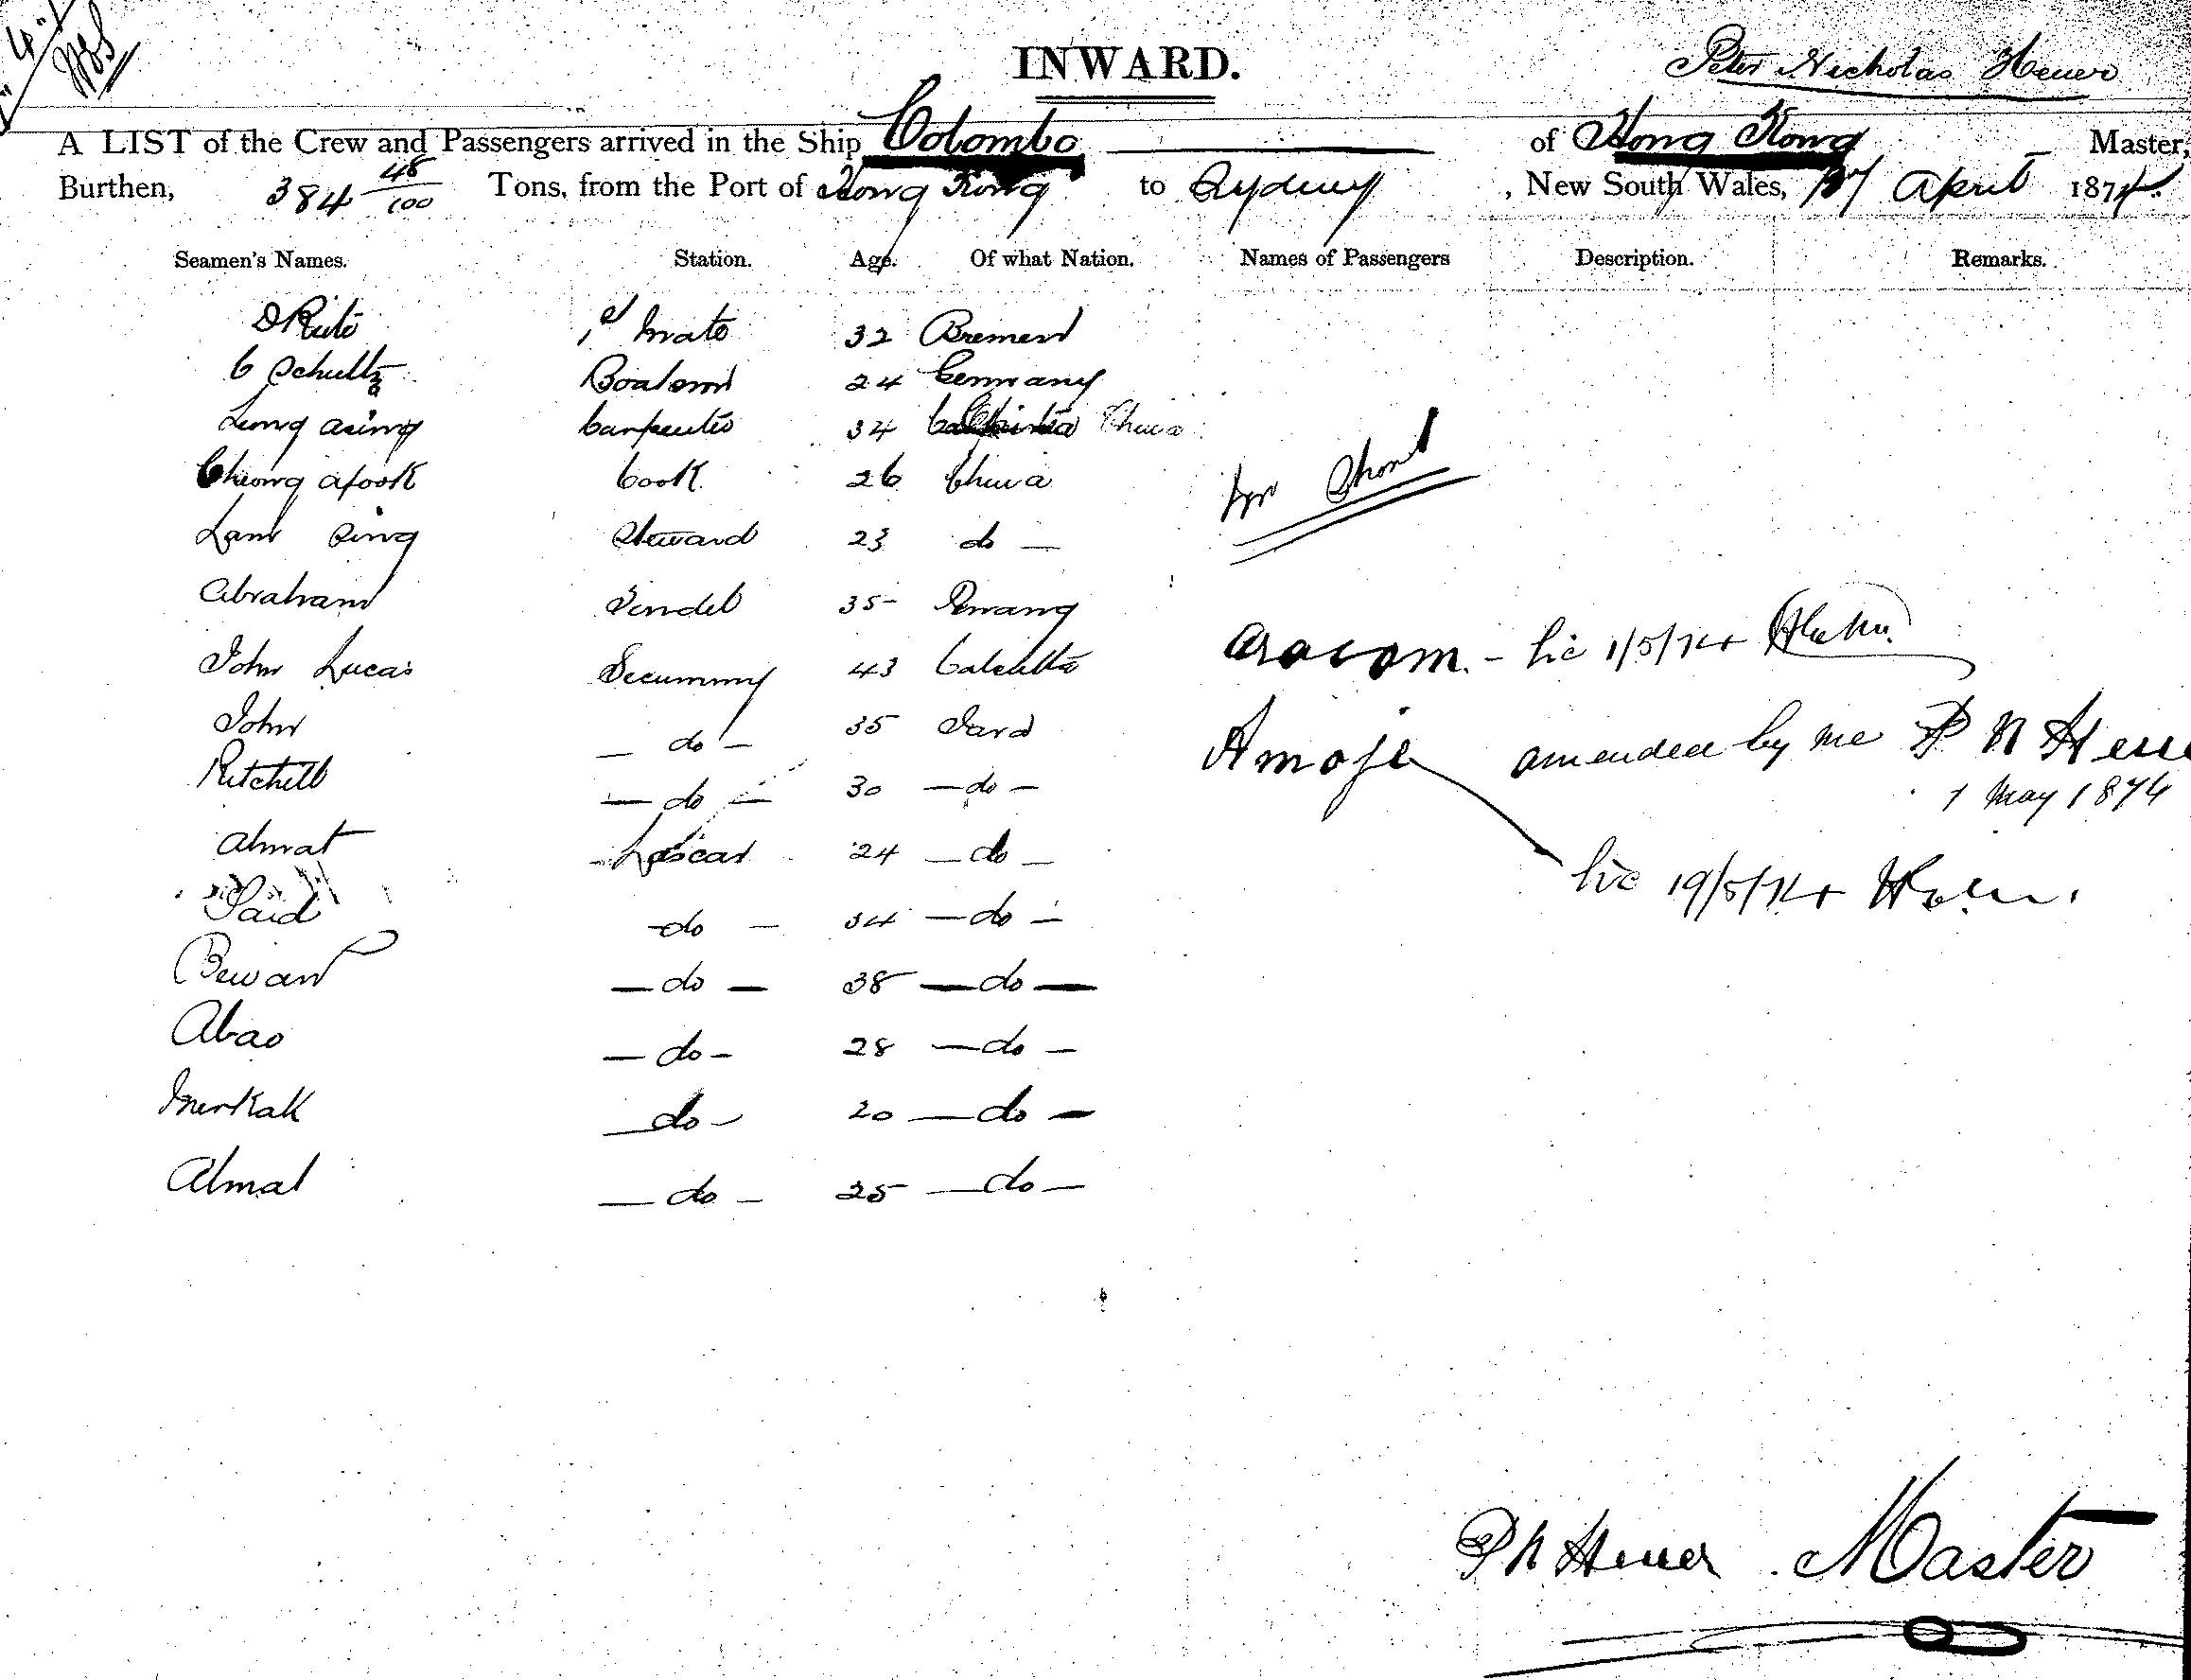 INWARD.
Peter Nicholas Heuer
A LIST of the Crew and Passengers arrived in the Ship Colombo of Hong Kong Master,
Burthen, 384 48/100 Tons, from the Port of Hong Kong to Sydney, New South Wales, April 1874.
Seamen's Names. Station. Age. Of what Nation. Names of Passengers Description. Remarks.
1st mate 32 Bremen
C Schultz Boatsman 24 Germany
Lung asing Carpenter 34 China
Cheong afook Cook 26 China
Lam Sing Steward 23 do
Abraham Tindel 35 Penang
John Lucas Secunny 43 Calcutta
John do 35 Java
Ritchell do 30 do
Almat Lascar 24 do
Said do 34 do
Bewan do 38 do
Abao do 28 do
do 20 do
Almat do 25 do
1/5/74
Amoje amended by me P N Heuer
1 May 1874
19/5/74
P N Heuer Master